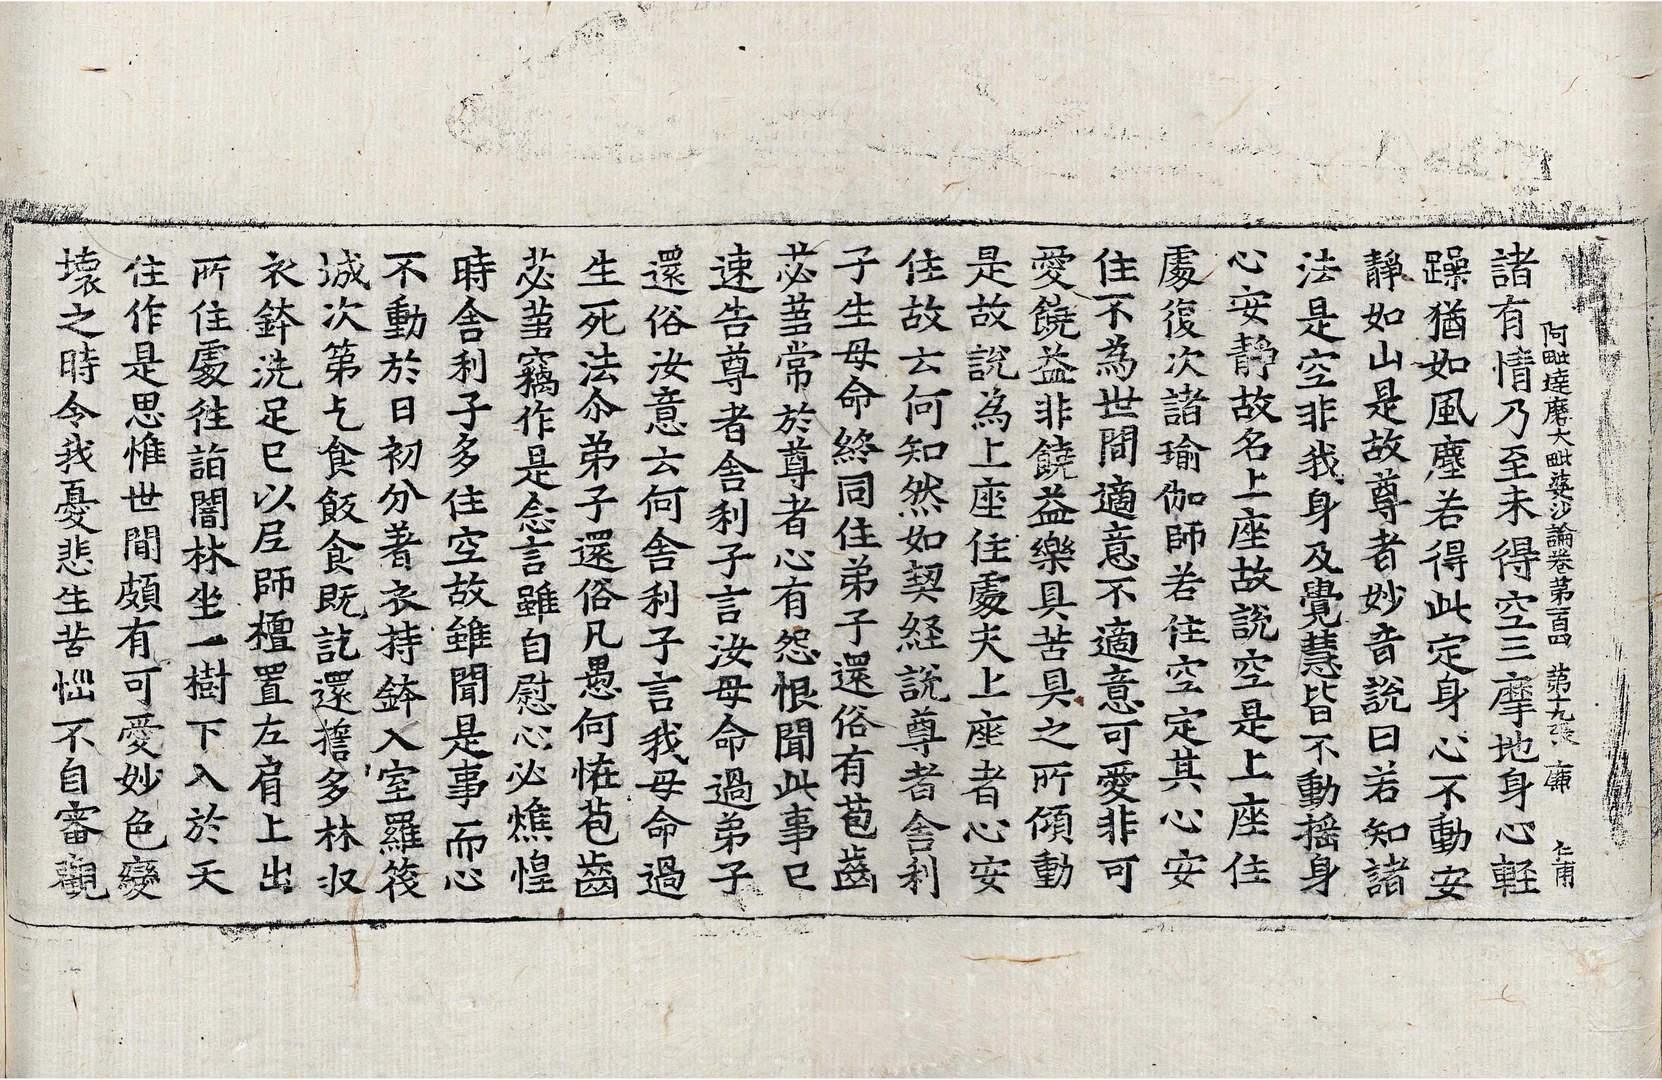 阿毗達磨大毗婆沙論卷第一百四　第十九張　廉　仁甫
諸有情乃至未得空三摩地身心輕
躁猶如風塵若得此定身心不動安
靜如山是故尊者妙音說曰若知諸
法是空非我身及覺慧皆不動搖身
心安靜故名上座故說空是上座住
處復次諸瑜伽師若住空定其心安
住不為世間適意不適意可愛非可
愛饒益非饒益樂具苦具之所傾動
是故說為上座住處夫上座者心安
住故云何知然如契經說尊者舍利
子生母命終同住弟子還俗有苞齒
苾芻常於尊者心有怨恨聞此事已
速告尊者舍利子言汝母命過弟子
還俗汝意云何舍利子言我母命過
生死法尒弟子還俗凡愚何恠苞齒
苾芻竊作是念言雖自慰心必燋惶
時舍利子多住空故雖聞是事而心
不動於日初分著衣持鉢入室羅筏
城次第乞食飯食既訖還擔多林収
衣鉢洗足已以尼師檀置左肩上出
所住處往詣闇林坐一樹下入於天
住作是思惟世間頗有可愛妙色變
壞之時令我憂悲生苦惱不自審觀